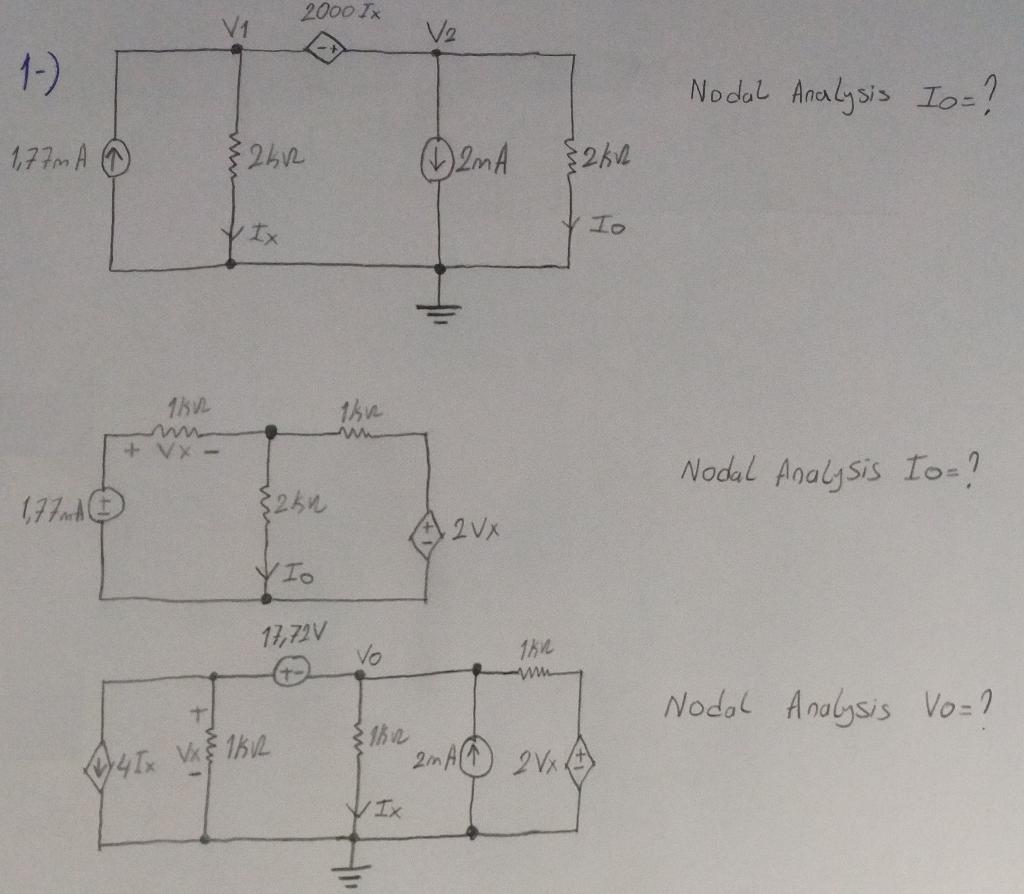 1-)
2000 Ix
V1
- +
V2
1,77mA
2kΩ
Ix
2mA
2kΩ
Io
Nodal Analysis Io=?
1kΩ
+ Vx -
1kΩ
1,77mA
+
-
2kΩ
Io
+
-
2Vx
Nodal Analysis Io=?
17,72V
+ -
Vo
1kΩ
4Ix
+
Vx
-
1kΩ
1kΩ
Ix
2mA
2Vx
+
-
Nodal Analysis Vo=?